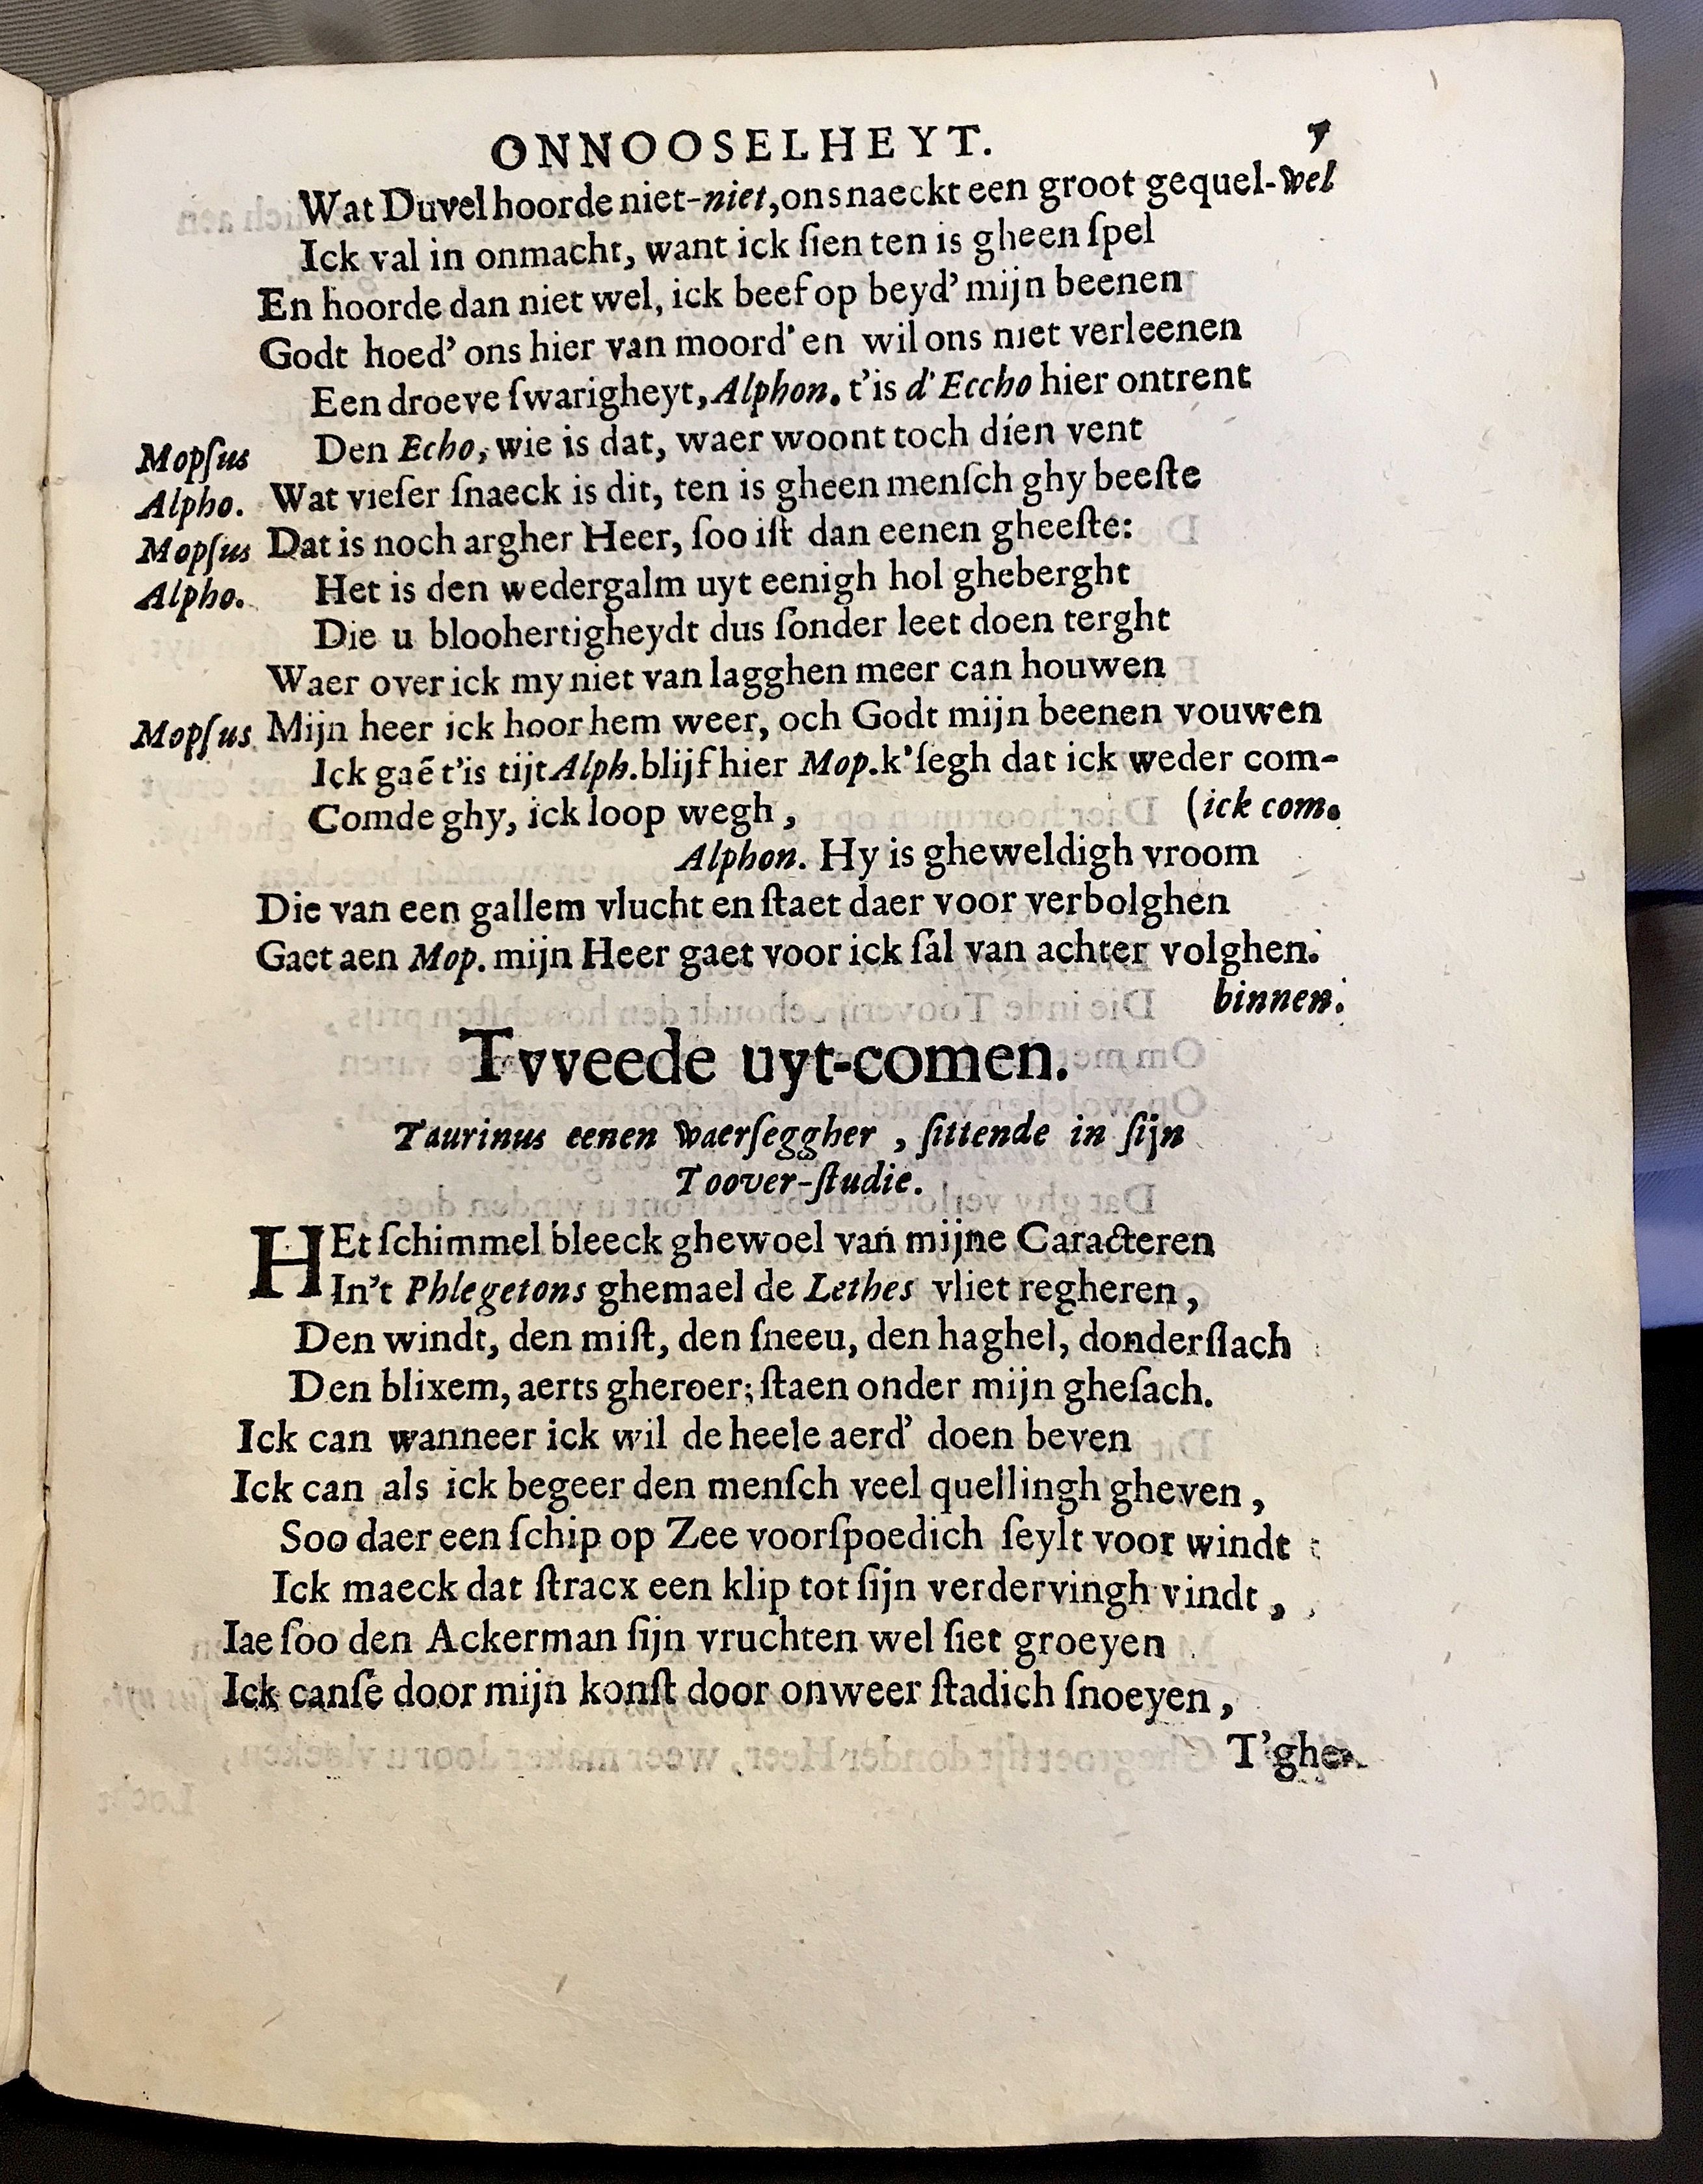 ONNOOSELHEYT. 7
Wat Duvel hoorde niet-niet, ons naeckt een groot gequel-wel
Ick val in onmacht, want ick ſien ten is gheen ſpel
En hoorde dan niet wel, ick beef op beyd' mijn beenen
Godt hoed' ons hier van moord' en wil ons niet verleenen
Een droeve ſwarigheyt, Alphon. t'is d'Eccho hier ontrent
Mopſus Den Echo, wie is dat, waer woont toch dien vent
Alpho. Wat vieſer ſnaeck is dit, ten is gheen menſch ghy beeſte
Mopſus Dat is noch argher Heer, ſoo iſt dan eenen gheeſte:
Alpho. Het is den wedergalm uyt eenigh hol gheberght
Die u bloohertigheydt dus ſonder leet doen terght
Waer over ick my niet van lagghen meer can houwen
Mopſus Mijn heer ick hoor hem weer, och Godt mijn beenen vouwen
Ick gaē t'is tijt Alph. blijf hier Mop. k'ſegh dat ick weder com-
Comde ghy, ick loop wegh, (ick com.
Alphon. Hy is gheweldigh vroom
Die van een gallem vlucht en ſtaet daer voor verbolghen
Gaet aen Mop. mijn Heer gaet voor ick ſal van achter volghen.
binnen.
Tvveede uyt-comen.
Taurinus eenen waerſeggher, ſittende in ſijn
Toover-ſtudie.
HEt ſchimmel bleeck ghewoel van mijne Caracteren
In't Phlegetons ghemael de Lethes vliet regheren,
Den windt, den miſt, den ſneeu, den haghel, donderſlach
Den blixem, aerts gheroer; ſtaen onder mijn gheſach.
Ick can wanneer ick wil de heele aerd' doen beven
Ick can als ick begeer den menſch veel quellingh gheven,
Soo daer een ſchip op Zee voorſpoedich ſeylt voor windt
Ick maeck dat ſtracx een klip tot ſijn verdervingh vindt,
Iae ſoo den Ackerman ſijn vruchten wel ſiet groeyen
Ick canſe door mijn konſt door onweer ſtadich ſnoeyen,
T'ghe-